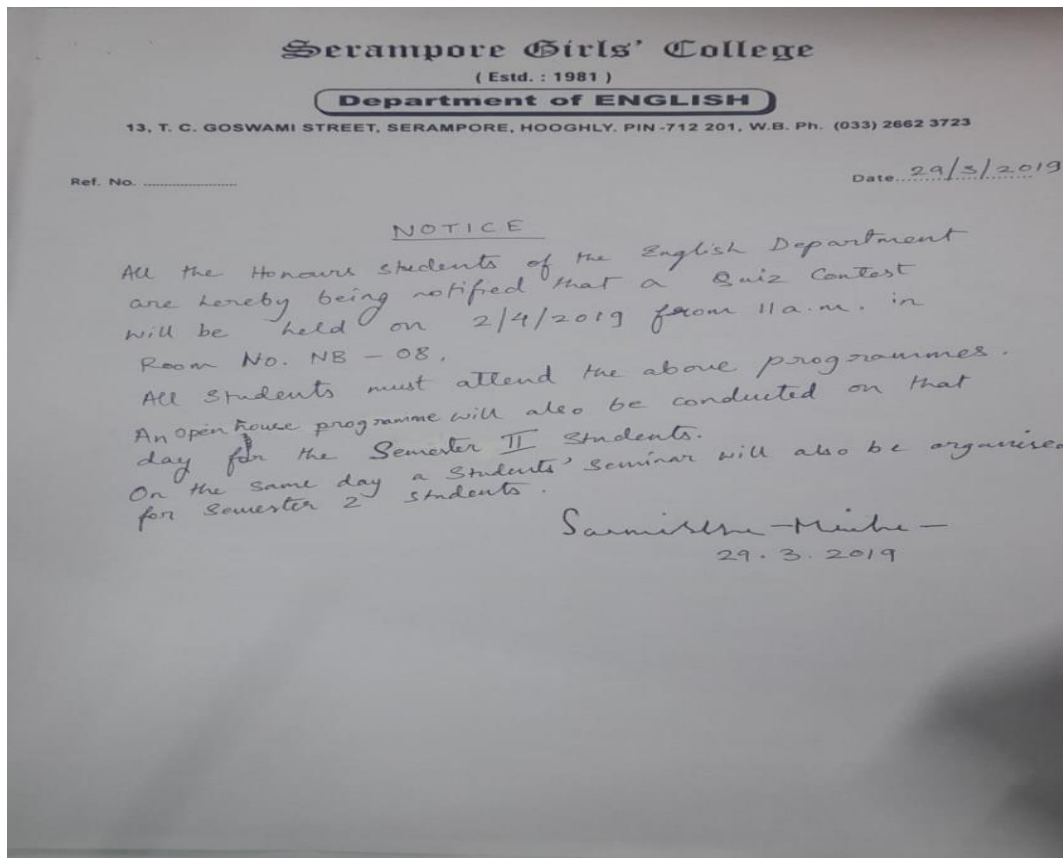 Serampore Girls' College
( Estd. : 1981 )
Department of ENGLISH
13, T. C. GOSWAMI STREET, SERAMPORE, HOOGHLY. PIN -712 201, W.B. Ph. (033) 2662 3723
Ref. No. ........................ Date. 29/3/2019
NOTICE
All the Honours students of the English Department
are hereby being notified that a Quiz Contest
will be held on 2/4/2019 from 11 a.m. in
Room No. NB - 08.
All Students must attend the above programmes.
An open house programme will also be conducted on that
day for the Semester II Students.
On the same day a Students' Seminar will also be organised
for Semester 2 students.
29.3.2019